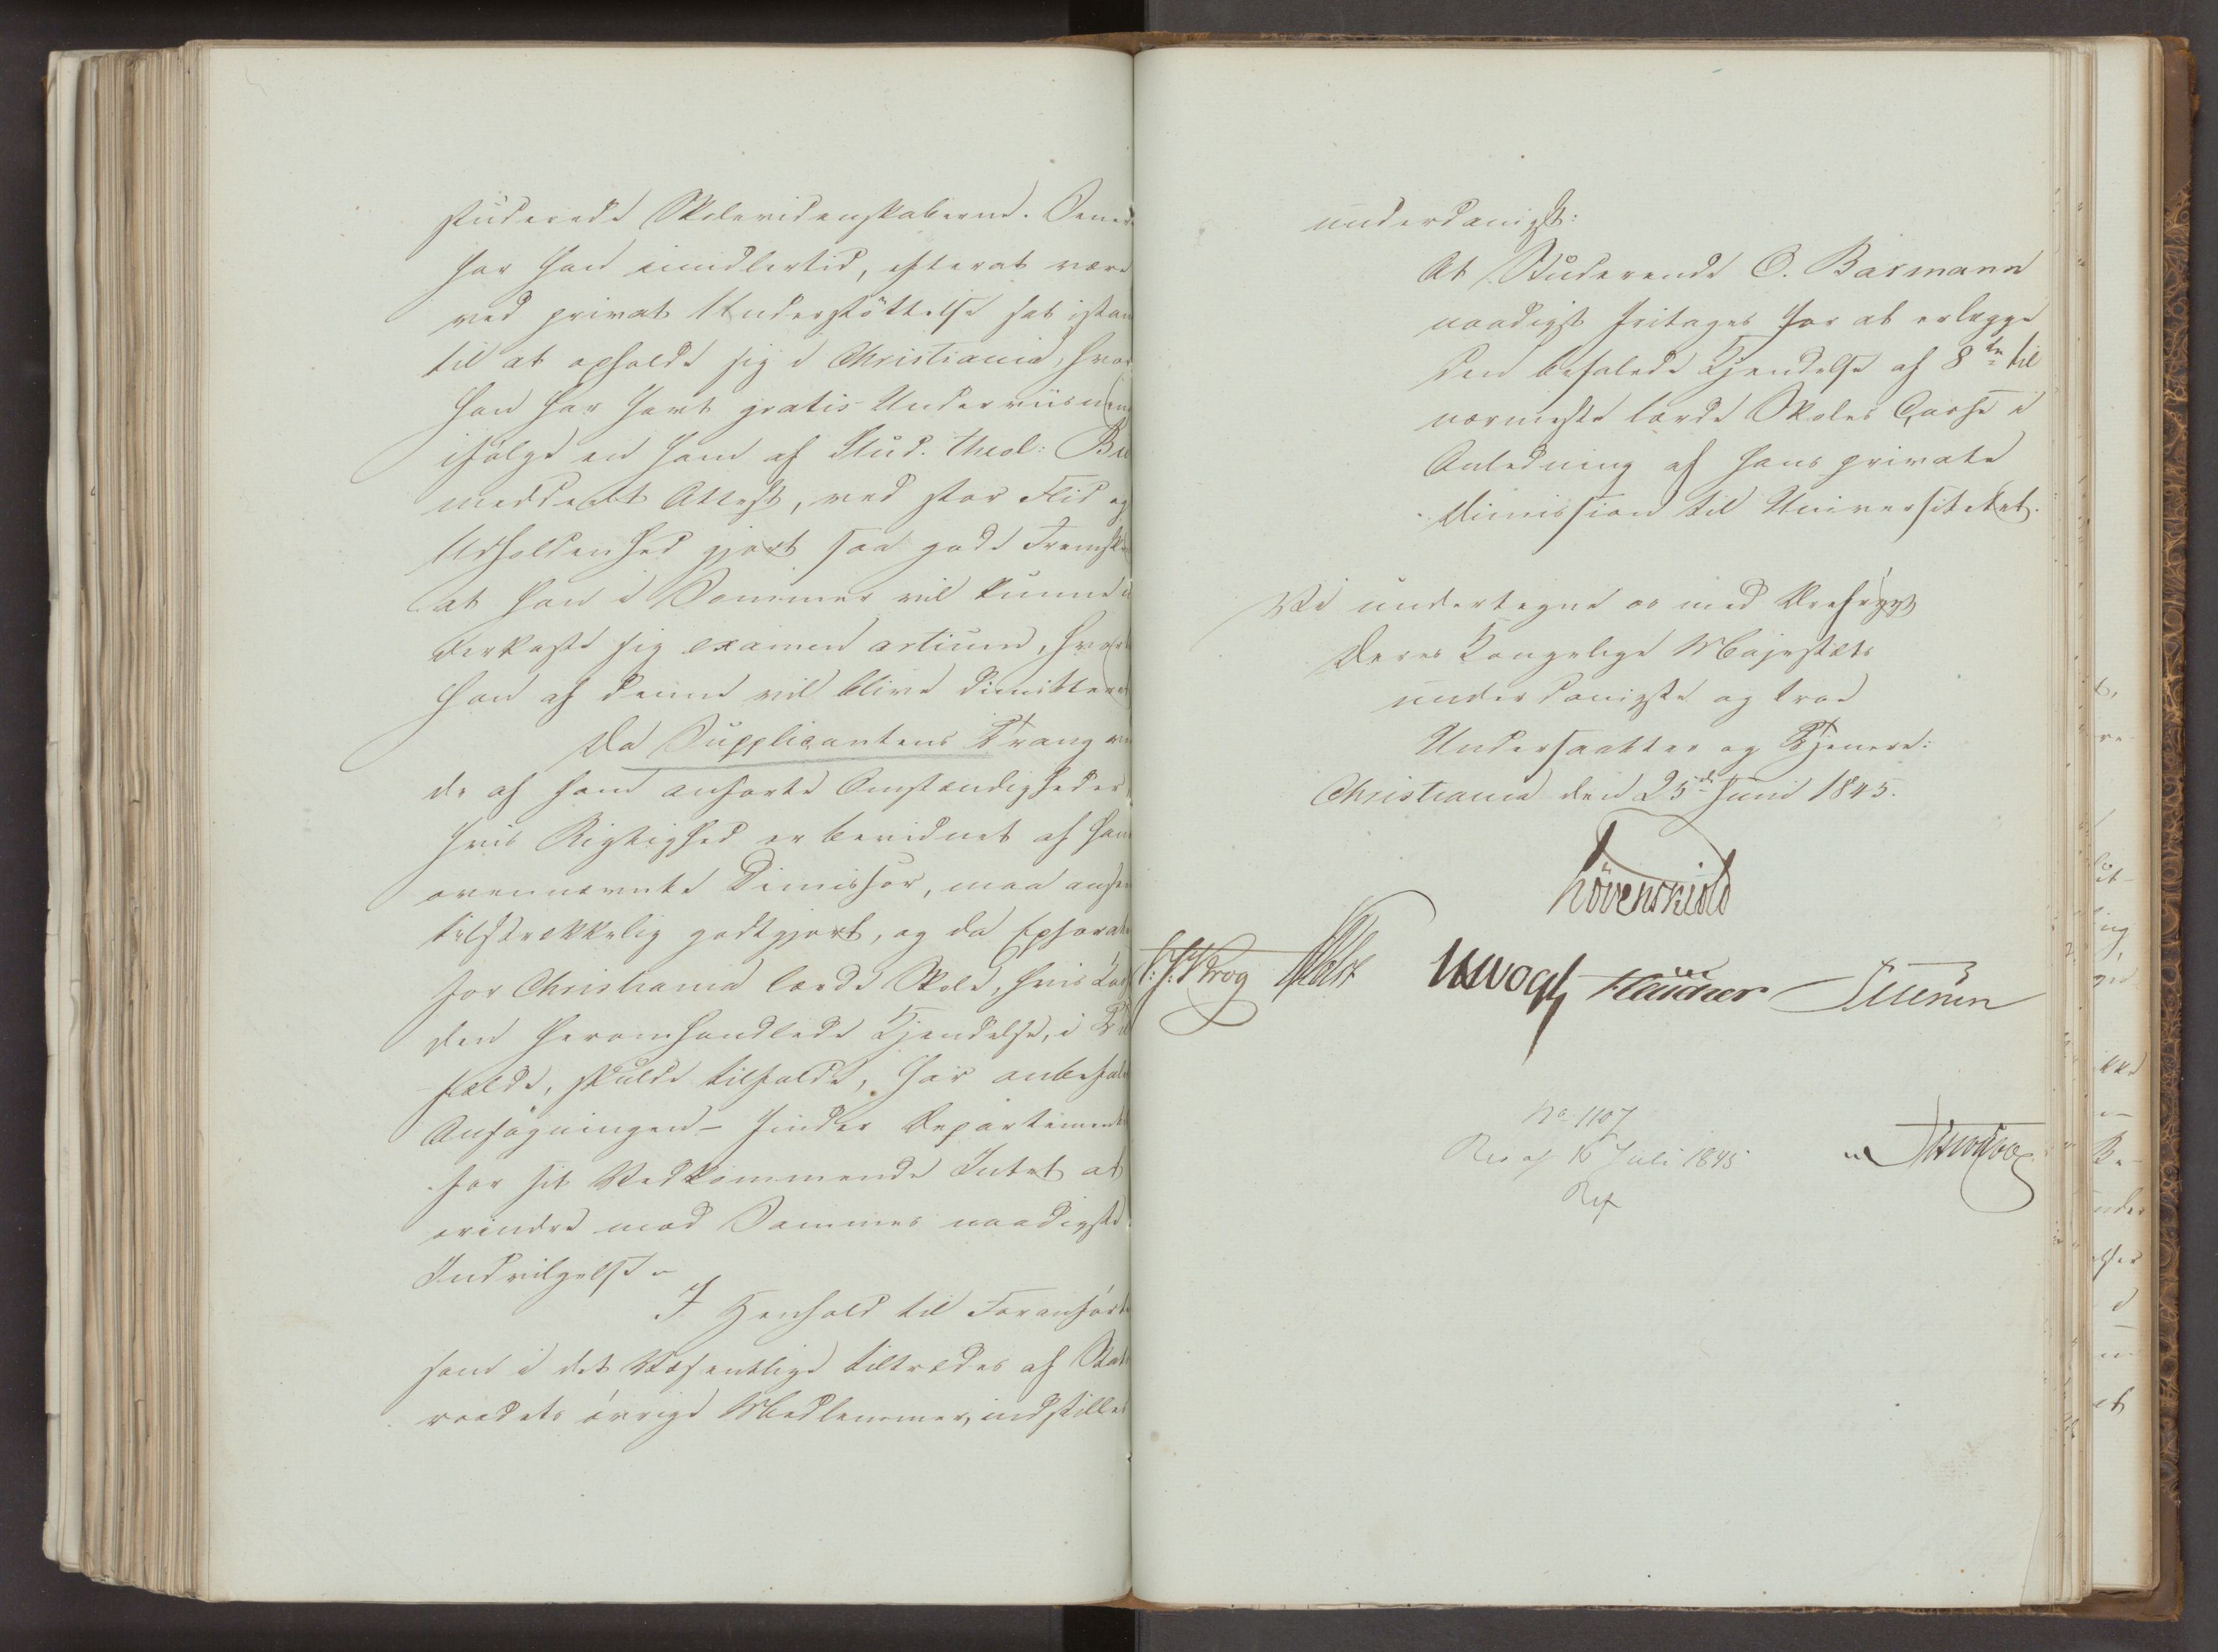 studerede Skolevidenskaberne. Sene
har han imidlertid, efterat være
ved privat Understöttelse sat istan
til at opholde sig i Christiania, hvor
han har havt gratis Underviisnin
ifølge en ham af Stud. theol: B
meddeelt Attest, ved stor Flid og
Udholdenhed gjort saa gode Fremsk
at han i Sommer vil kunne u
derkaste sig examen artium, hvor
han af denne vil blive dimitter
Da Supplicantens Trang ve
de af ham anførte Omstændigheder,
hvis Rigtighed er bevidnet af han
ovennævnte Dimissor, maa ansee
tilstrækkelig godtgjort, og da Ephorat
for Christiania lærde Skole, hvis Cas
den heromhandlede Kjendelse, i Til
fælde, skulde tilfalde, har anbefal
Ansögningen – finder Departement
for sit Vedkommende Intet at
erindre mod Sammes naadigste
Indvilgelse.
I Henhold til Foranfört
som i det Væsentlige tiltrædes af Stat
raadets övrige Medlemmer, indstilles
underdanigst:
At Studerende O. Barmann
naadigst fritages for at erlægge
den befalede Kjendelse af 8 til
nærmeste lærde Skoles Casse i
Anledning af hans private
Dimission til Universitetet.
Vi undertegne os med Ærefrygt
Deres Kongelige Majestæts
underdanigste og troe
Undersaatter og Tjenere:
Christiania den 25de Juni 1845.
Lövenskiold
Krog Holst Vogt
No 1107
Res af 16 Juli 1845